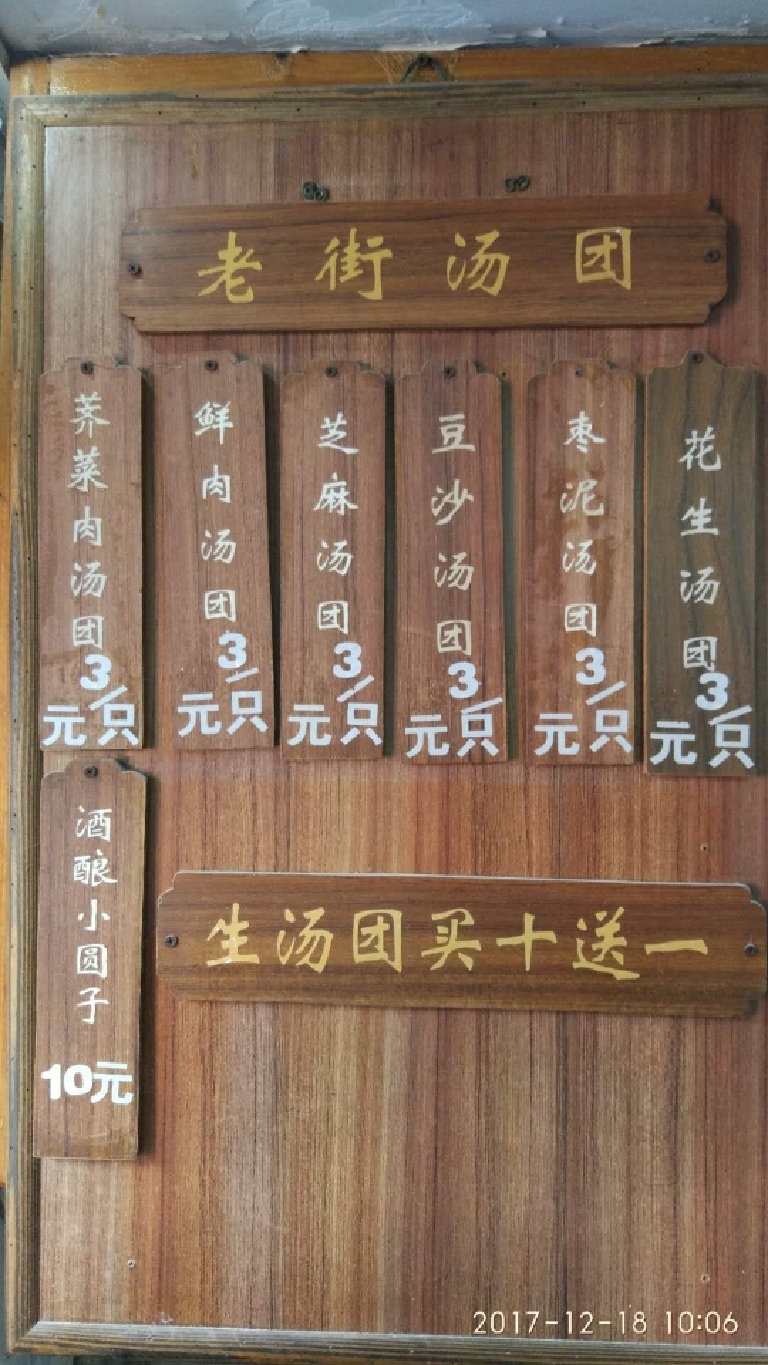 老街汤团
荠菜肉汤团
3元/只
鲜肉汤团
3元/只
芝麻汤团
3元/只
豆沙汤团
3元/只
枣泥汤团
3元/只
花生汤团
3元/只
酒酿小圆子
10元
生汤团买十送一
2017-12-18 10:06